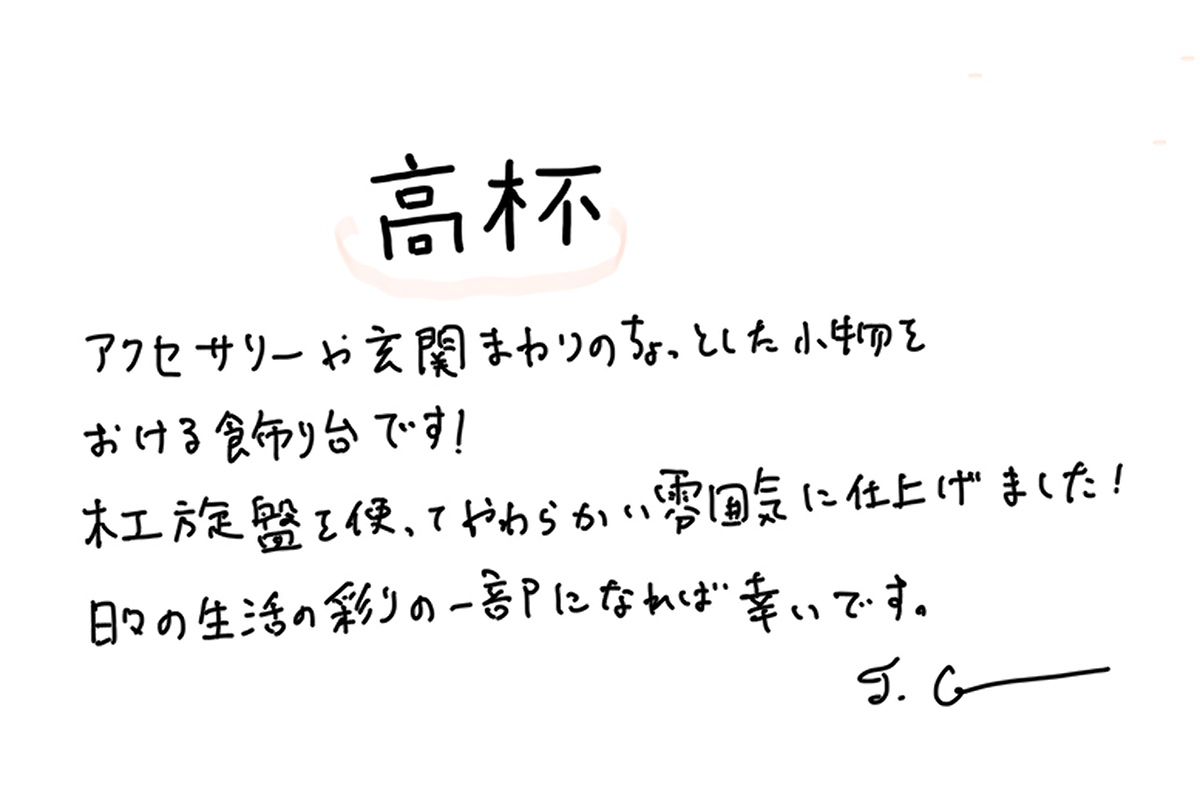 高杯
アクセサリーや玄関まわりのちょっとした小物を
おける飾り台です!
木工旋盤を使ってやわらかい雰囲気に仕上げました!
日々の生活の彩りの一部になれば幸いです。